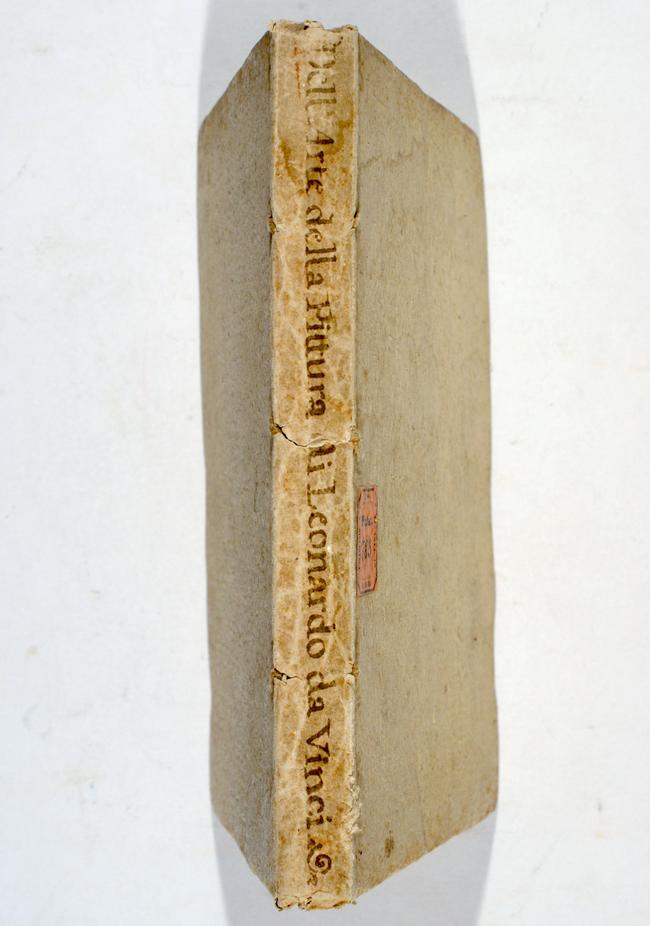 Dell'Arte della Pittura di Leonardo da Vinci